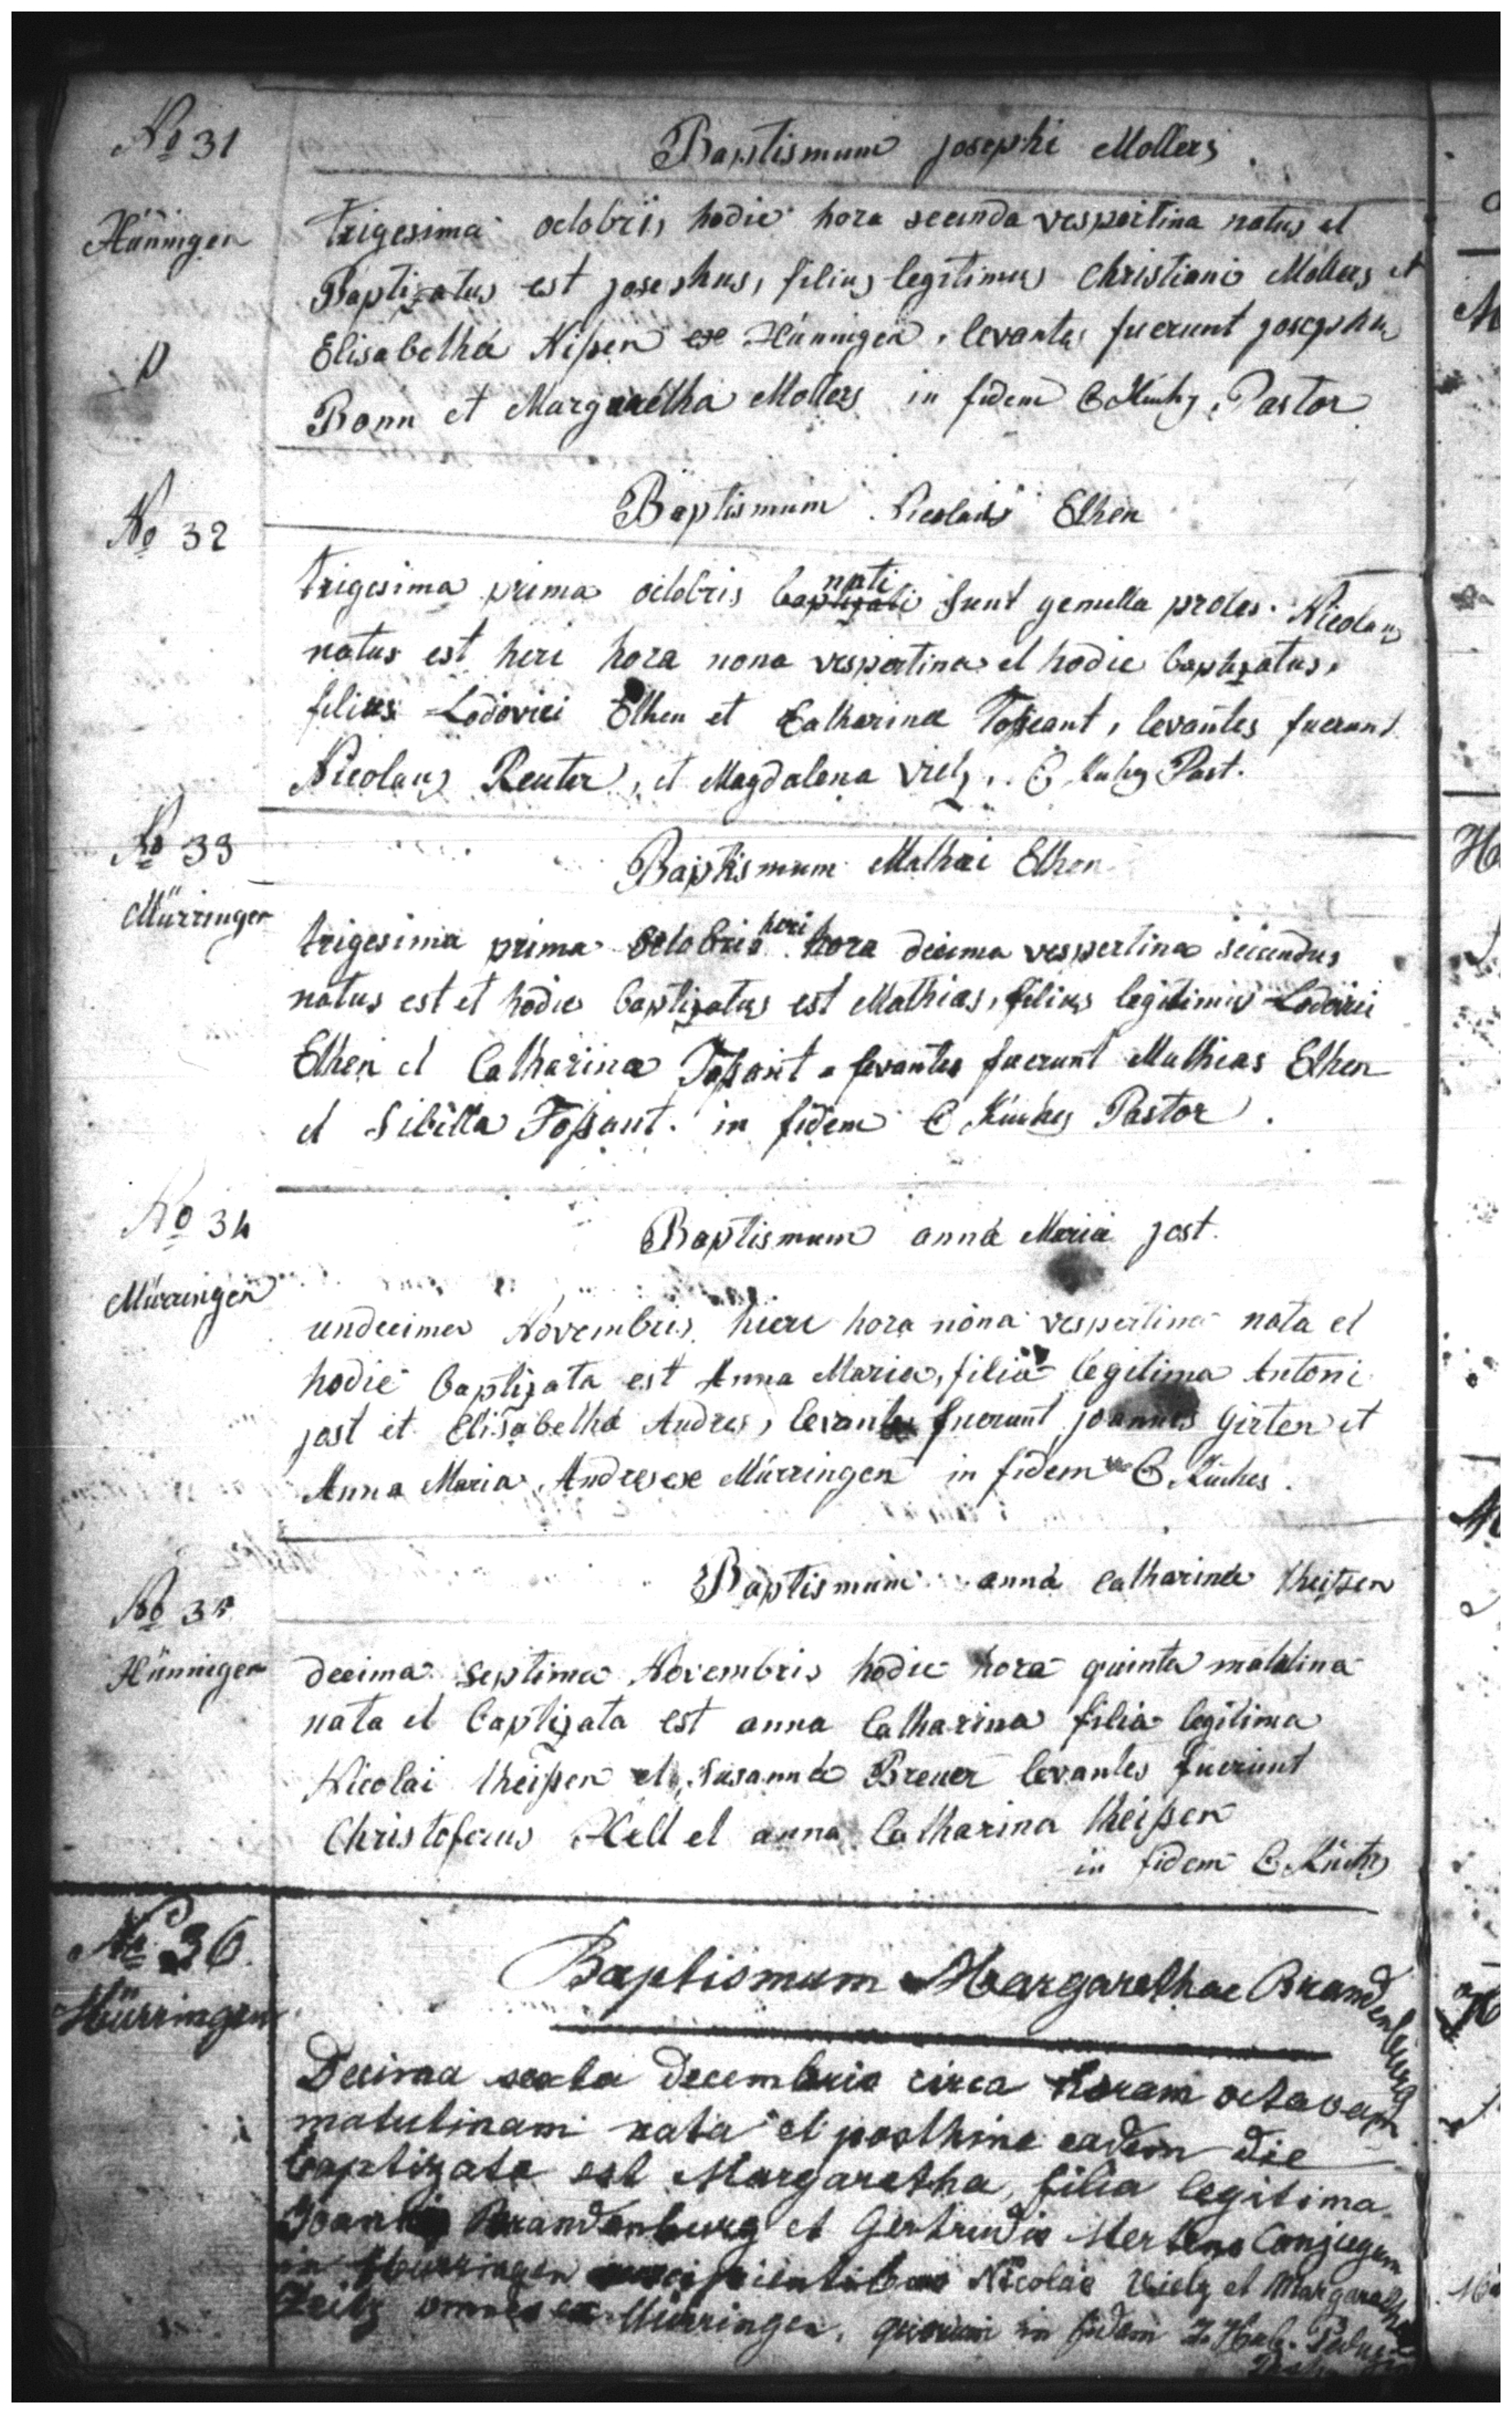 No 31
Baptismum josephi Mollers
Hünningen
trigesima octobris hodie hora secunda vespertina natus et
Baptizatus est josephus, filius legitimus Christiani Mollers et
Elisabetha Nißen ex Hünningen, levantes fuerunt josephus
p
Bonn et Margaretha Mollers in fidem C Küches, Pastor
No 32
Baptismum Nicolai Elhen
nati
trigesima prima octobris baptizati sunt gemella proles. Nicolaus
natus est heri hora nona vespertina et hodie baptizatus,
filius Lodovici Elhen et Catharina Toßeant, levantes fuerunt
Nicolaus Reuter, et Magdalena Vielz, C Küches Past.
No 33
Baptismum Mathei Elhen
Mürringen
heri
trigesima prima octobris hora decima vespertina secundus
natus est et hodie baptizatus est Mathias, filius legitimus Lodovici
Elhen et Catharina Toßant levantes fuerunt Mathias Elhen
et Sibilla Toßant. in fidem C Küches Pastor.
No 34
Baptismum anna Maria jost.
Mürringen
undecima Novembris, hieri hora nona vespertina nata et
hodie baptizata est Anna Maria, filia legitima Antoni
jost et Elisabetha Andres, levantes fuerunt joannes Girten et
Anna Maria Andres ex Mürringen in fidem C Küches.
No 35
Baptismum anna Catharina theißen
Hünningen
decima septima Novembris hodie hora quinta matutina
nata et baptizata est anna Catharina filia legitima
Nicolai theißen et Susanna Breuer levantes fuerunt
Christoferus Hell et anna Catharina theißen
in fidem C Küches
No 36.
Baptismum Margarethae Brandenburg
Mürringen
Decima sexta decembris circa horam octavam
matutinam nata et posthinc eadem die
baptizata est Margaretha, filia legitima
Joannis Brandenburg et Gertrudis Mertens Conjugum
in Mürringen suscipientibus Nicolao Vielz et Margaretha
Zeitz omnes ex Mürringen, quorum in fidem J. Hub.